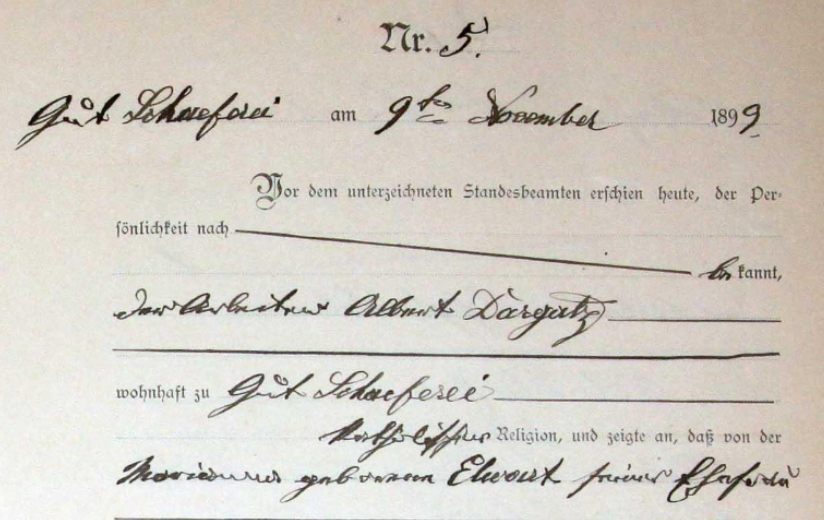 Nr. 5.
Gut Schaeferei am 9ten November 1899
Vor dem unterzeichneten Standesbeamten erschien heute, der Per-
sönlichkeit nach
bekannt,
der Arbeiter Albert Dargatz
wohnhaft zu Gut Schaeferei
katholischer Religion, und zeigte an, daß von der
geborenen Elwart seiner Ehefrau